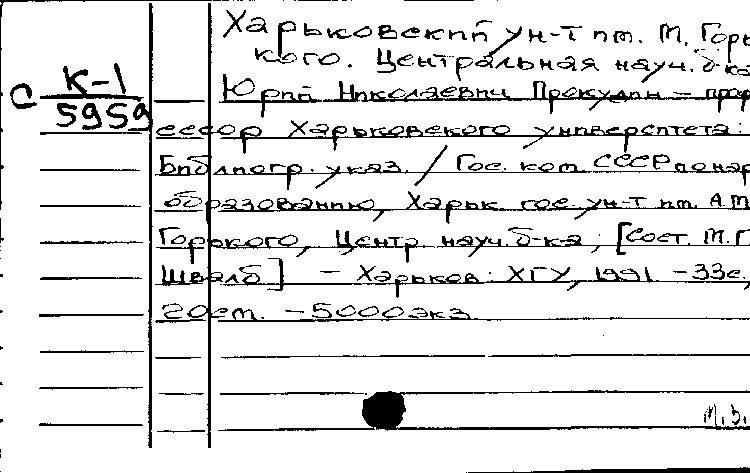 Харьковский ун-т им. М. Горь
кого. Центральная науч. б-ка
С К-1
5959
Юрий Николаевич Прокудин – проф
ессор Харьковского университета:
Библиогр. указ. / Гос. ком. СССР по нар.
образованию, Харьк. гос. ун-т им. А.М.
Горького, Центр. науч. б-ка; [Сост. М.Г.
Швалб] – Харьков: ХГУ, 1991. – 33с.,
20см. – 5000экз.